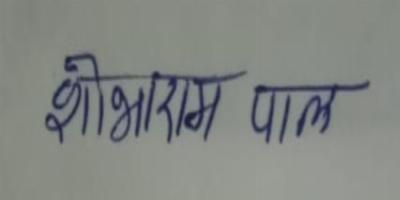 शोभाराम पाल